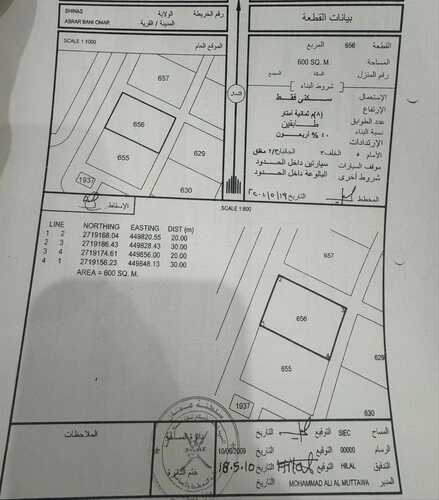 SHINAS
ASRAR BANI OMAR
الولاية
المدينة / القرية
رقم الخريطة
بيانات القطعة
SCALE 1:1000
الموقع العام
657
656
655
629
630
1937
الشمال
القطعة 656 المربع
المساحة 600 SQ. M.
رقم المنزل السكة المجمع
شروط البناء
الإستعمال سكني فقط
الإرتفاع (٨م) ثمانية أمتار
عدد الطوابق طابقين
نسبة البناء ٤٠ % أربعون
الإرتدادات
الأمام ٥ الخلف ٣ الجانبا ٢/٣
موقف السيارات سيارتين داخل الحدود
شروط أخرى البالوعة داخل الحدود
المخطط التاريخ
الإسقاط
SCALE 1:500
LINE NORTHING EASTING DIST (m)
1 2 2719168.04 449820.55 20.00
2 3 2719186.43 449828.43 30.00
3 4 2719174.61 449856.00 20.00
4 1 2719156.23 449848.13 30.00
AREA = 600 SQ. M.
657
656
655
629
630
1937
1
2
3
4
الملاحظات
دائرة المساحة
ختم الدائرة
المساح SIEC التوقيع التاريخ
الرسام 00000 التوقيع التاريخ 10/06/2009
التدقيق HILAL التوقيع التاريخ 18.5.10
المدير MOHAMMAD ALI AL MUTTAWA